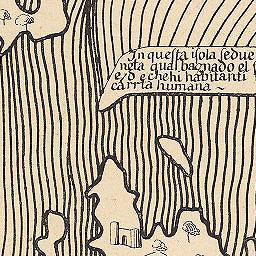 In questa isola se due
neta qual bagnado el
e/d e chehi habitanti
carna humana ~